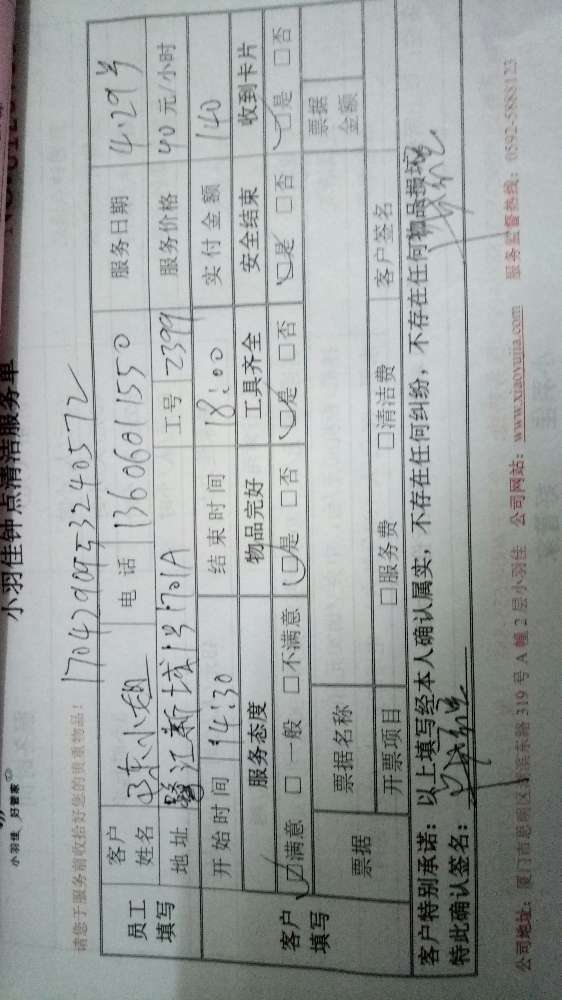 小羽佳 好管家
小羽佳钟点清洁服务单
请您于服务前收拾好您的贵重物品！
1704290953240572
员工填写 客户姓名 小姐 电话 13606011550 服务日期 4.29号
地址 江新城 701A 工号 2399 服务价格 40元/小时
开始时间 14:30 结束时间 18:00 实付金额 140
客户填写 服务态度 物品完好 工具齐全 安全结束 收到卡片
☑满意 □一般 □不满意 ☑是 □否 ☑是 □否 ☑是 □否 ☑是 □否
票据 票据名称 票据金额
开票项目 □服务费 □清洁费 客户签名
客户特别承诺：以上填写经本人确认属实，不存在任何纠纷，不存在任何物品损坏
特此确认签名：
公司地址：厦门市思明区 滨东路319号A幢2层小羽佳 公司网站：www.xiaoyujia.com 服务监督热线：0592-5888123